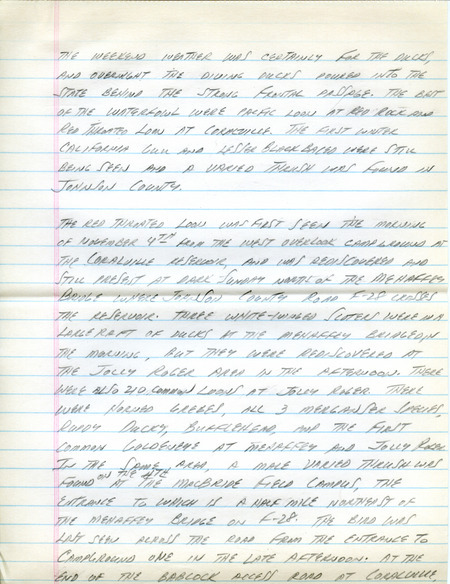 THE WEEKEND WEATHER WAS CERTAINLY FOR THE DUCKS,
AND OVERNIGHT THE DIVING DUCKS POURED INTO THE
STATE BEHIND THE STRONG FRONTAL PASSAGE. THE BEST
OF THE WATERFOWL WERE PACIFIC LOON AT RED ROCK AND
RED THROATED LOON AT CORALVILLE. THE FIRST WINTER
CALIFORNIA GULL AND LESSER BLACK BACKED WERE STILL
BEING SEEN AND A VARIED THRUSH WAS FOUND IN
JOHNSON COUNTY.
THE RED THROATED LOON WAS FIRST SEEN THE MORNING
OF NOVEMBER 4TH FROM THE WEST OVERLOOK CAMPGROUND AT
THE CORALVILLE RESERVOIR AND WAS REDISCOVERED AND
STILL PRESENT AT DARK SUNDAY NORTH OF THE MEHAFFEY
BRIDGE WHERE JOHNSON COUNTY ROAD F-28 CROSSES
THE RESERVOIR. THREE WHITE-WINGED SCOTERS WERE IN A
LARGE RAFT OF DUCKS AT THE MEHAFFEY BRIDGE IN
THE MORNING, BUT THEY WERE REDISCOVERED AT
THE JOLLY ROGER AREA IN THE AFTERNOON. THERE
WERE ALSO 210 COMMON LOONS AT JOLLY ROGER. THERE
WERE HORNED GREBES, ALL 3 MERGANSER SPECIES,
RUDDY DUCKS, BUFFLEHEAD, AND THE FIRST
COMMON GOLDENEYE AT MEHAFFEY AND JOLLY ROGER.
IN THE SAME AREA, A MALE VARIED THRUSH WAS
FOUND ON THE 4TH AT THE MACBRIDE FIELD CAMPUS, THE
ENTRANCE TO WHICH IS A HALF MILE NORTHEAST OF
THE MEHAFFEY BRIDGE ON F-28. THE BIRD WAS
LAST SEEN ACROSS THE ROAD FROM THE ENTRANCE TO
CAMPGROUND ONE IN THE LATE AFTERNOON. AT THE
END OF THE BABCOCK ACCESS ROAD AT CORALVILLE,